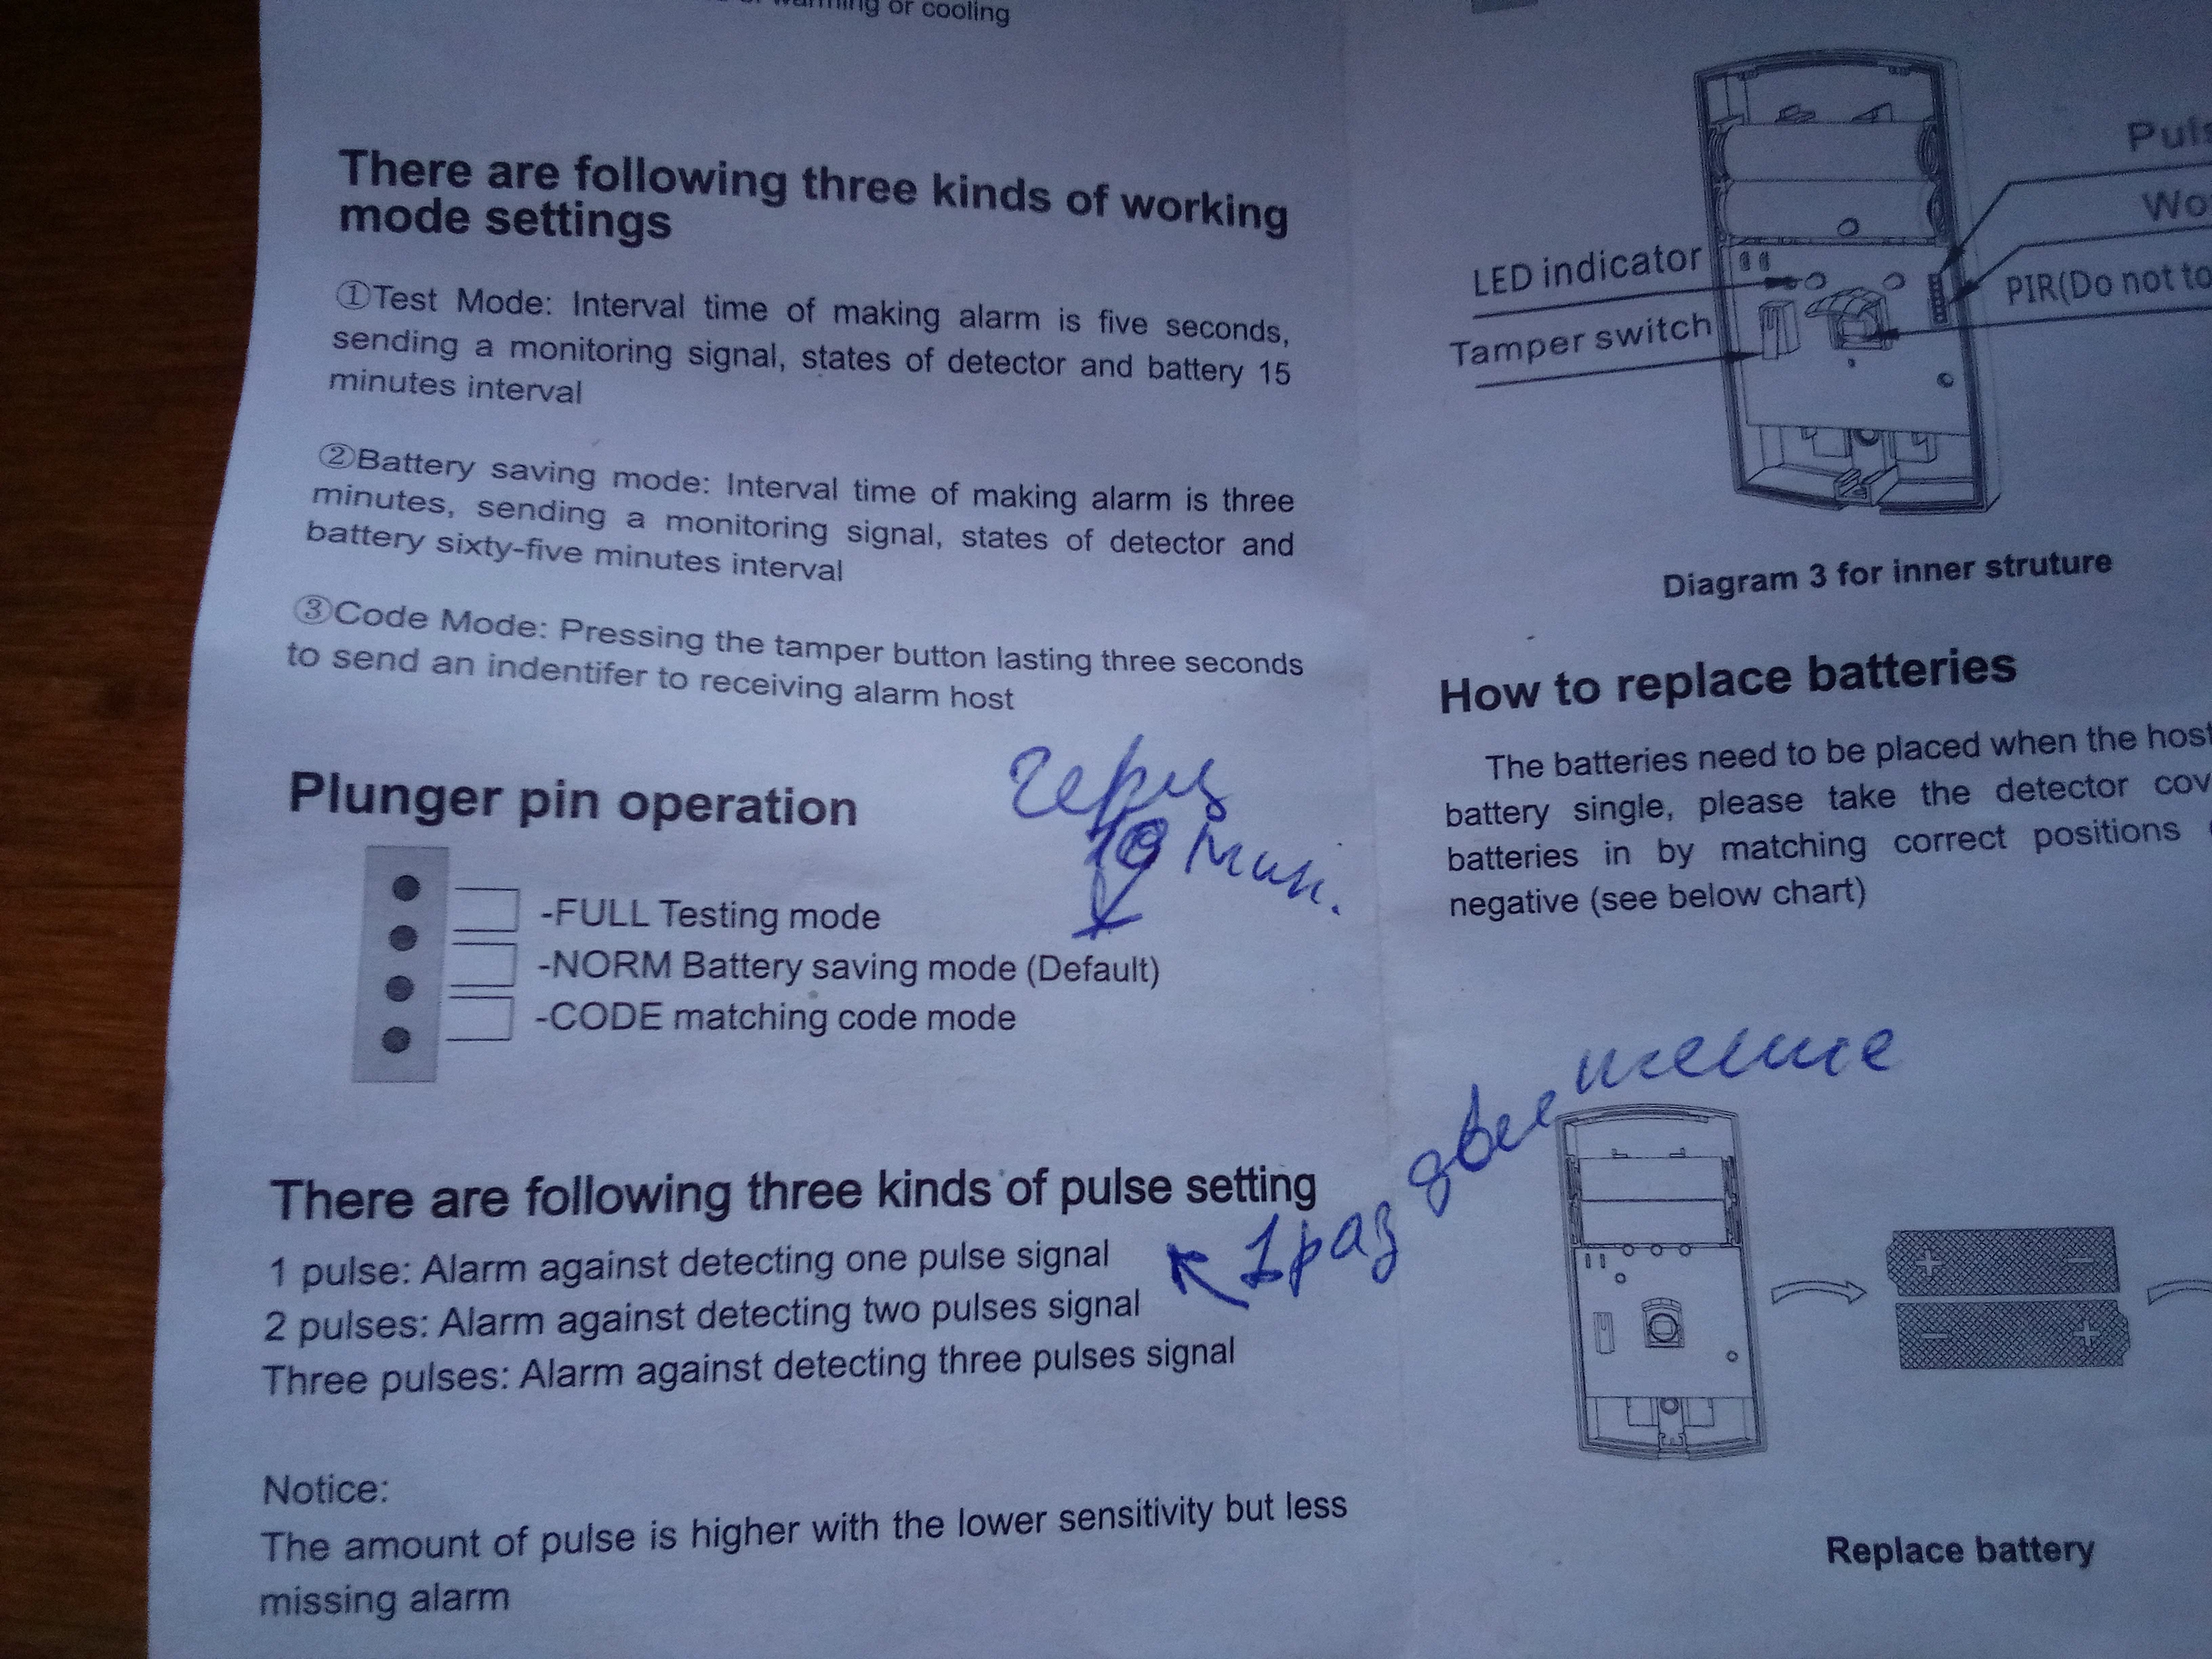 warming or cooling
There are following three kinds of working
mode settings
①Test Mode: Interval time of making alarm is five seconds,
sending a monitoring signal, states of detector and battery 15
minutes interval
②Battery saving mode: Interval time of making alarm is three
minutes, sending a monitoring signal, states of detector and
battery sixty-five minutes interval
③Code Mode: Pressing the tamper button lasting three seconds
to send an indentifer to receiving alarm host
Plunger pin operation
через
10 мин.
-FULL Testing mode
-NORM Battery saving mode (Default)
-CODE matching code mode
There are following three kinds of pulse setting
1 pulse: Alarm against detecting one pulse signal
2 pulses: Alarm against detecting two pulses signal
Three pulses: Alarm against detecting three pulses signal
1 раз движение
Notice:
The amount of pulse is higher with the lower sensitivity but less
missing alarm
LED indicator
Tamper switch
PIR(Do not to
Diagram 3 for inner struture
How to replace batteries
The batteries need to be placed when the host
battery single, please take the detector cov
batteries in by matching correct positions
negative (see below chart)
+ −
− +
Replace battery